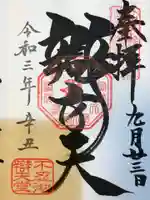 奉拝
九月廿三日
辯才天
令和三年 辛丑
不忍池
辯天堂